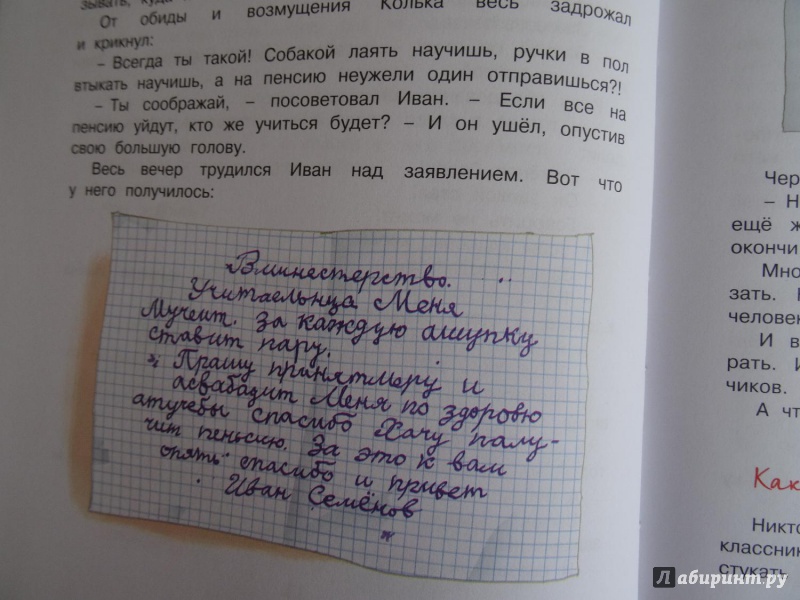 зывать, куда
От обиды и возмущения Колька весь задрожал
и крикнул:
– Всегда ты такой! Собакой лаять научишь, ручки в пол
втыкать научишь, а на пенсию неужели один отправишься?!
– Ты соображай, – посоветовал Иван. – Если все на
пенсию уйдут, кто же учиться будет? – И он ушёл, опустив
свою большую голову.
Весь вечер трудился Иван над заявлением. Вот что
у него получилось:
Вминестерство.
Учитаельнца Меня
Мучеит. За каждую ашупку
ставит пару.
Прашу принятмеру и
асвабадит Меня по здоровю
атучебы спасибо Хачу палу-
чит пеньсию. За это к вам
опять спасибо и привет
Иван Семёнов
Чер
– Н
ещё ж
окончи
Мно
зать.
человек
И в
рать. И
чиков.
А чт
Как
Никто
классник
стукать
Лабиринт.ру